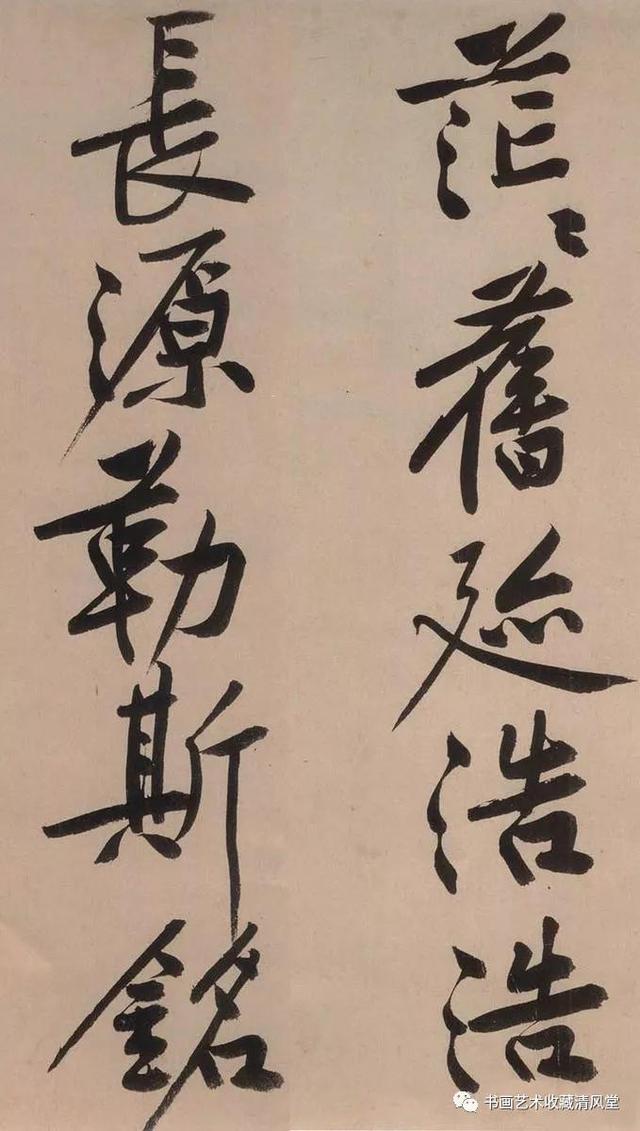 茫〻舊迹浩浩
長源勒斯銘
书画艺术收藏清风堂